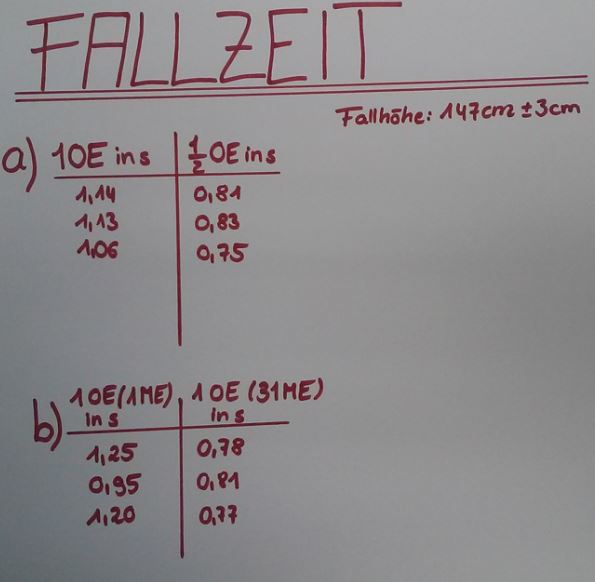 FALLZEIT
Fallhöhe: 147cm ±3cm
a) 1OE in s | ½ OE in s
1,14 | 0,81
1,13 | 0,83
1,06 | 0,75
b) 1OE(1ME) in s | 1OE (31ME) in s
1,25 | 0,78
0,95 | 0,81
1,20 | 0,77